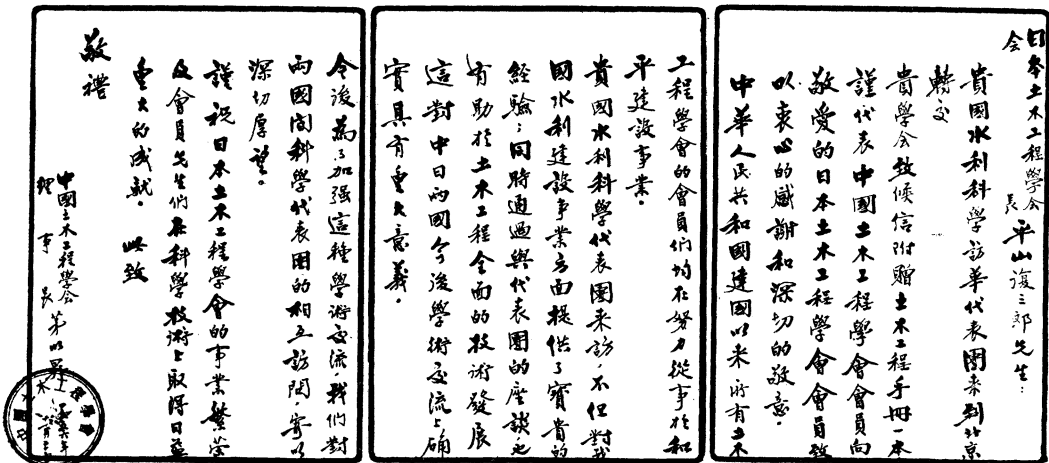 日本土木工程學会
会長 平山復三郎先生：
貴國水利科學訪華代表團来到北京
轉交
貴學会致候信附贈土木工程手冊一本
謹代表中國土木工程學會會員向
敬愛的日本土木工程學會會員致
以衷心的感謝和深切的敬意。
中華人民共和國建國以来所有土木
工程學會的會員們均在努力從事於和
平建設事業。
貴國水利科學代表團来訪，不但對我
國水利建設事業方面提供了寶貴的
經驗；同時通過與代表團的座談也
有助於土木工程全面的技術發展
這對中日兩國今後學術交流上確
實具有重大意義。
今後為了加强這種學術交流我們對
兩國間科學代表團的相互訪問，寄以
深切厚望。
謹祝日本土木工程學會的事業繁荣
及會員先生們在科學技術上取得日益
重大的成就。 此致
敬禮
中國土木工程學会
理事長